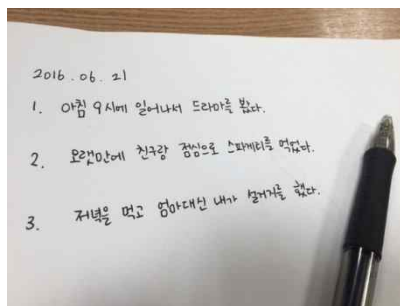 2016.06.21
1. 아침 9시에 일어나서 드라마를 봤다.
2. 오랫만에 친구랑 점심으로 스파게티를 먹었다.
3. 저녁을 먹고 엄마대신 내가 설거지를 했다.